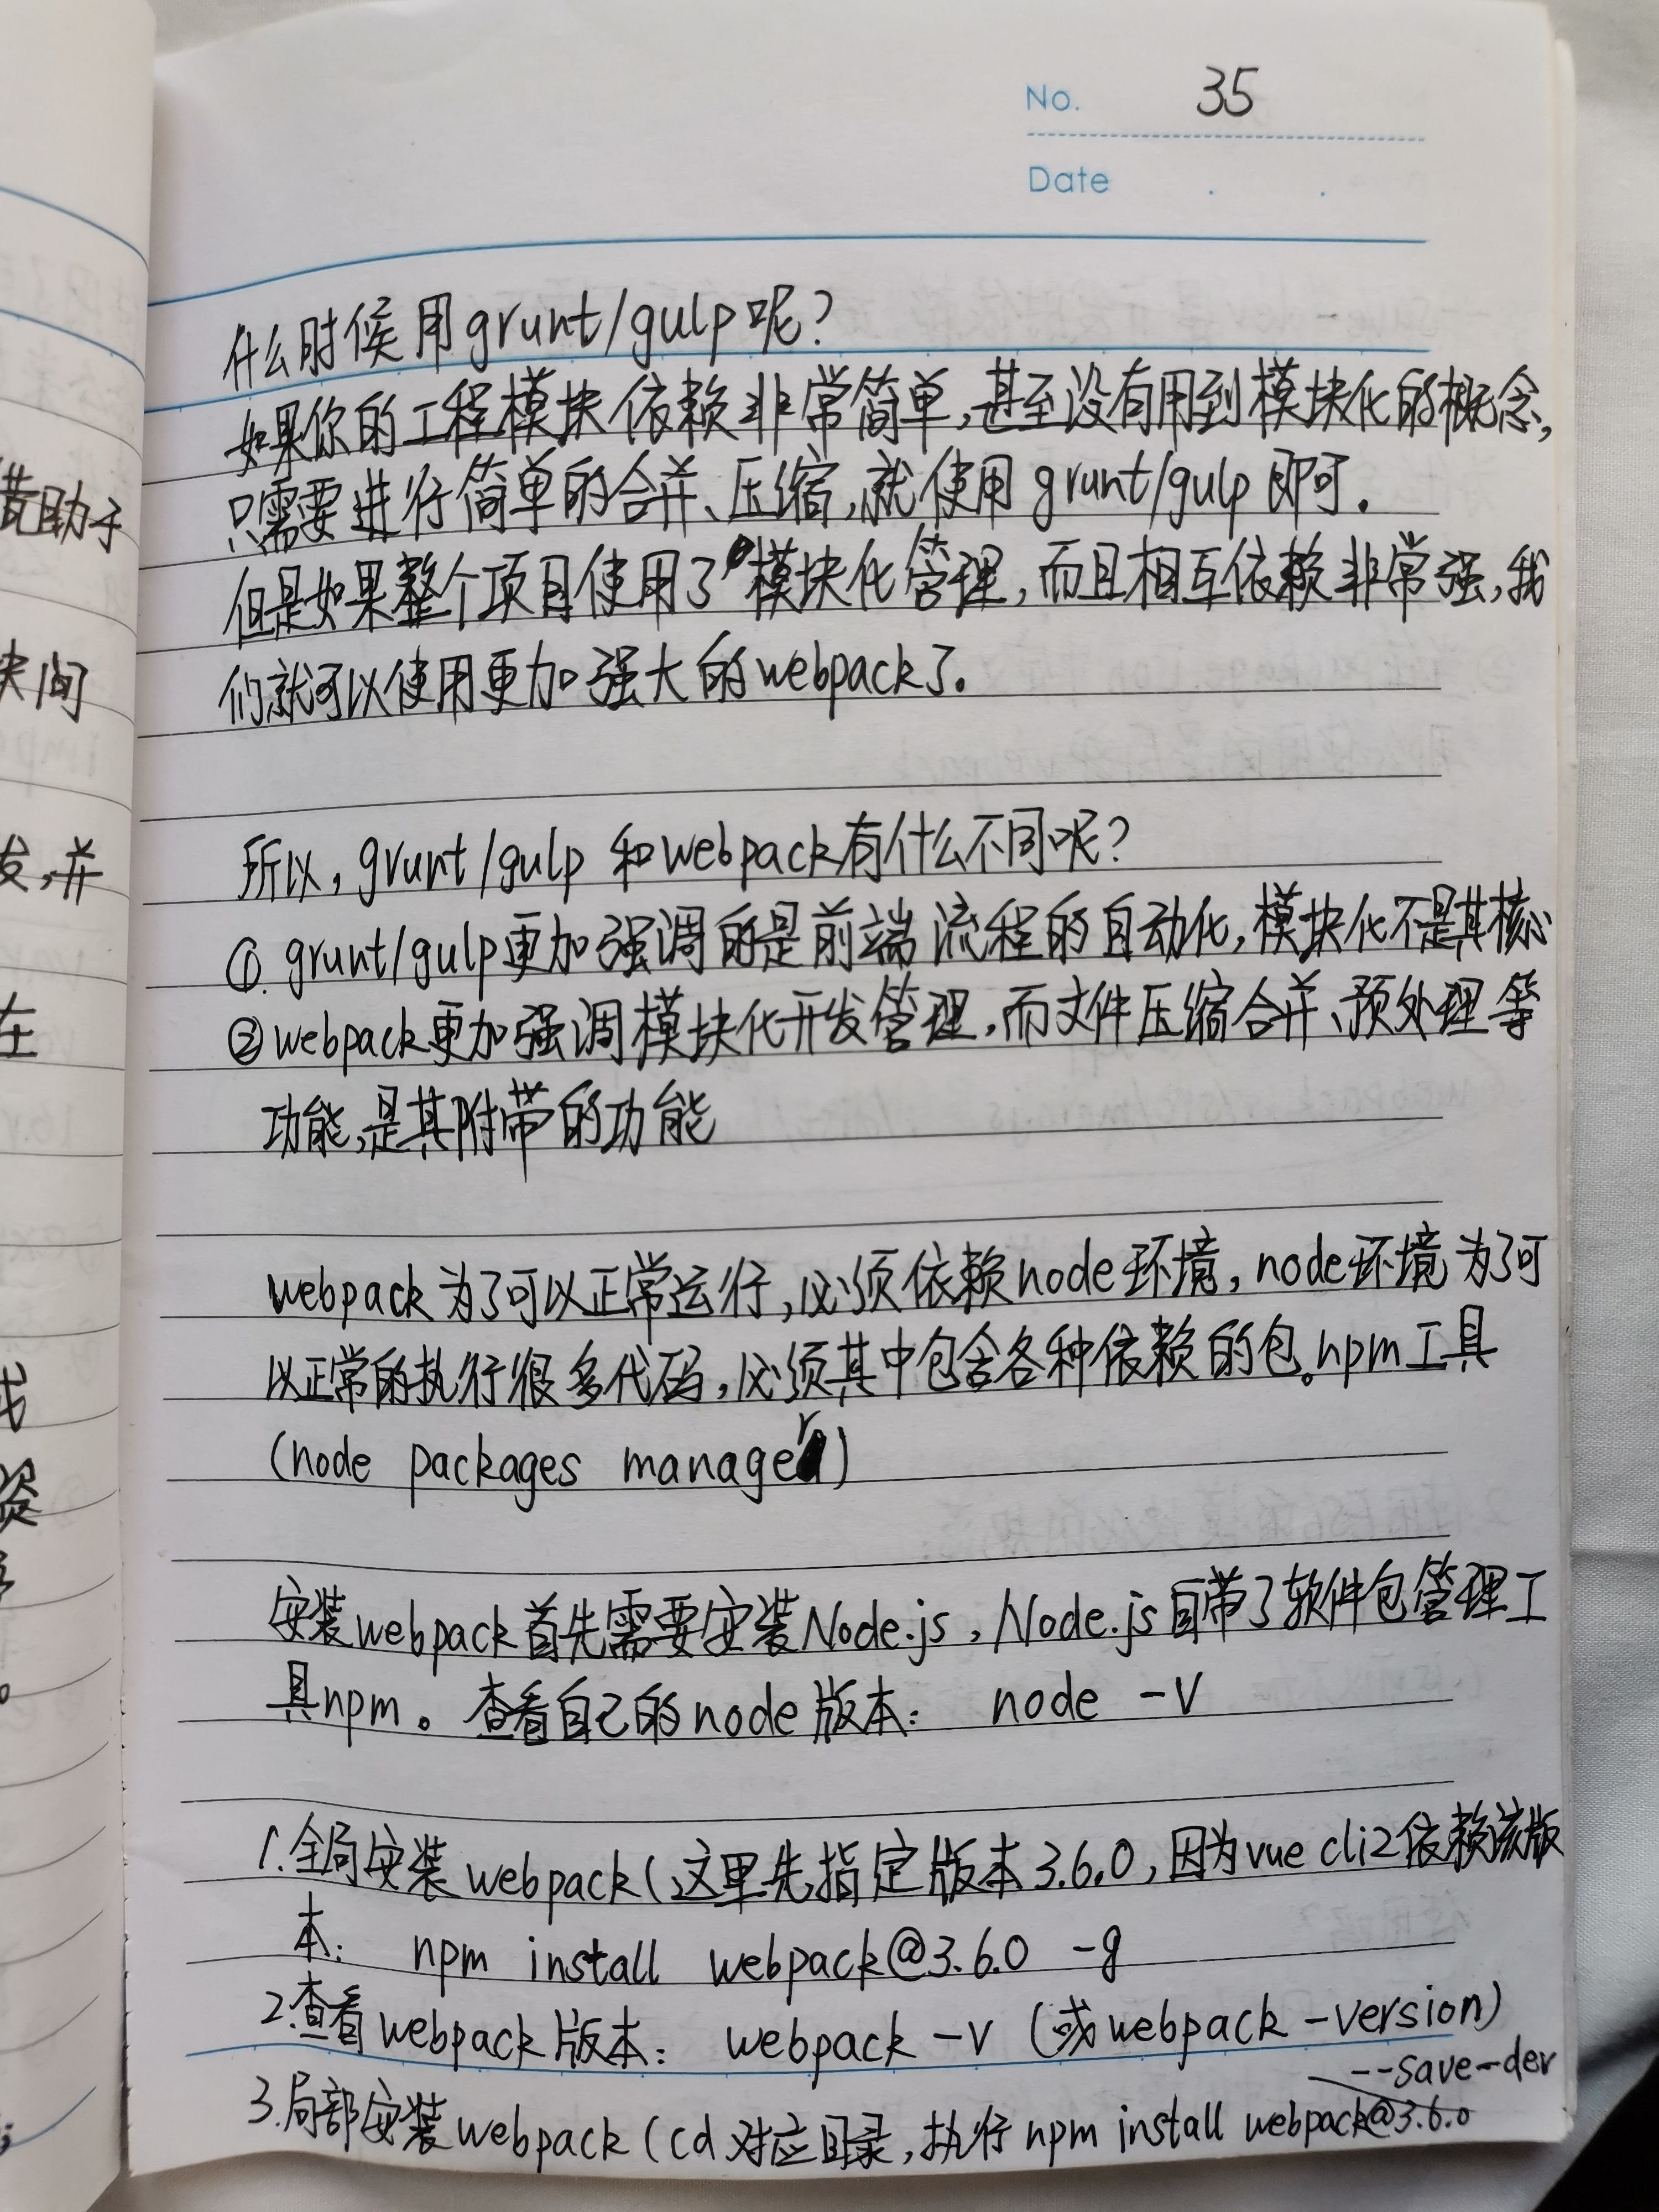 No. 35
Date . .
什么时候用grunt/gulp呢?
如果你的工程模块依赖非常简单,甚至没有用到模块化的概念,
只需要进行简单的合并、压缩,就使用grunt/gulp即可.
但是如果整个项目使用了模块化管理,而且相互依赖非常强,我
们就可以使用更加强大的webpack了。
所以,grunt/gulp和webpack有什么不同呢?
①. grunt/gulp更加强调的是前端流程的自动化,模块化不是其核心
②webpack更加强调模块化开发管理,而文件压缩合并、预处理等
功能,是其附带的功能
webpack为了可以正常运行,必须依赖node环境,node环境为了可
以正常的执行很多代码,必须其中包含各种依赖的包。npm工具
(node packages manager)
安装webpack首先需要安装Node.js,Node.js自带了软件包管理工
具npm。查看自己的node版本: node -v
1.全局安装webpack(这里先指定版本3.6.0,因为vue cli2依赖该版
本: npm install webpack@3.6.0 -g
2.查看webpack版本: webpack -v (或webpack -version)
3.局部安装webpack(cd对应目录,执行npm install webpack@3.6.0
--save-dev
借助于
块间
发,并
在
我
资